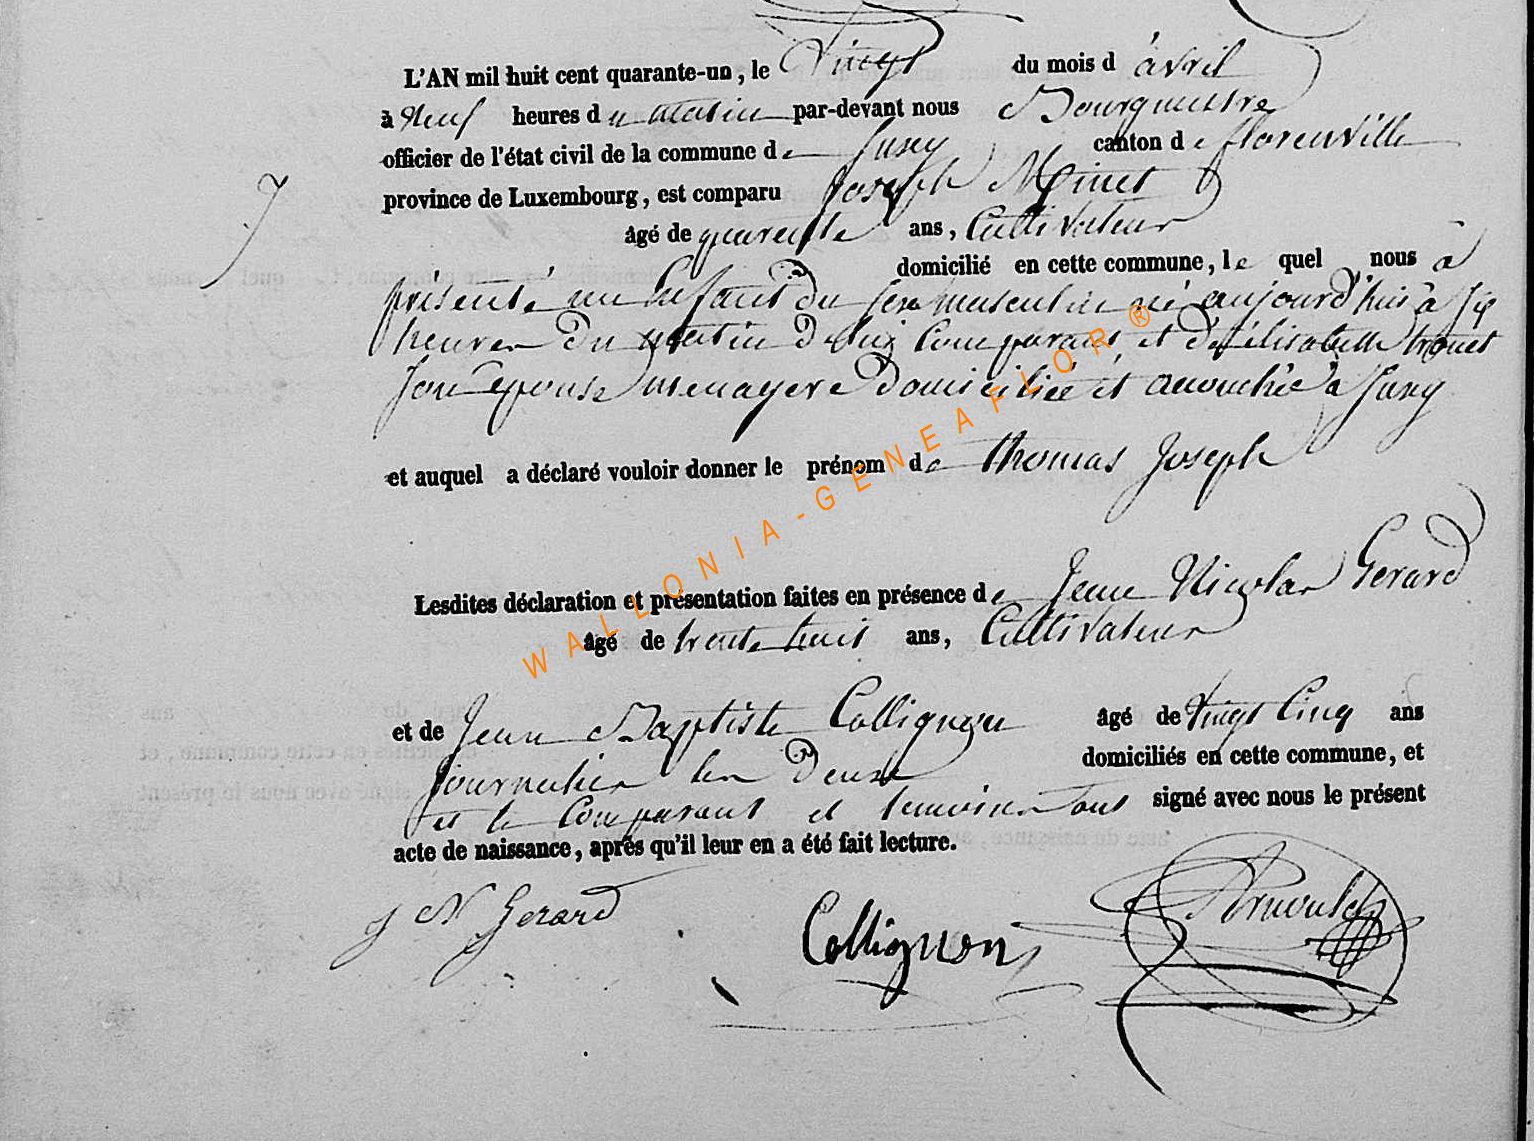 L'AN mil huit cent quarante-un, le Vingt du mois d'avril
à Neuf heures du matin par-devant nous Bourgmestre
officier de l'état civil de la commune de Jusey canton de florenville
province de Luxembourg, est comparu Joseph Minet
7
âgé de quarente ans, Cultivateur
domicilié en cette commune, le quel nous à
présenté un Enfant du sexe masculin né aujourd'hui à six
heures du matin de lui Comparant et d'élisabeth
son épouse menagere domiciliée et acouchée à Jusey
et auquel a déclaré vouloir donner le prénom de thomas Joseph
Lesdites déclaration et présentation faites en présence de Jean Nicolas Gerard
âgé de trente huit ans, Cultivateur
et de Jean Baptiste Collignon âgé de Vingt Cinq ans
journalier les deux domiciliés en cette commune, et
et le Comparant et temoins ont signé avec nous le présent
acte de naissance, après qu'il leur en a été fait lecture.
J N Gerard Collignon
WALLONIA-GENEAFLOR ®